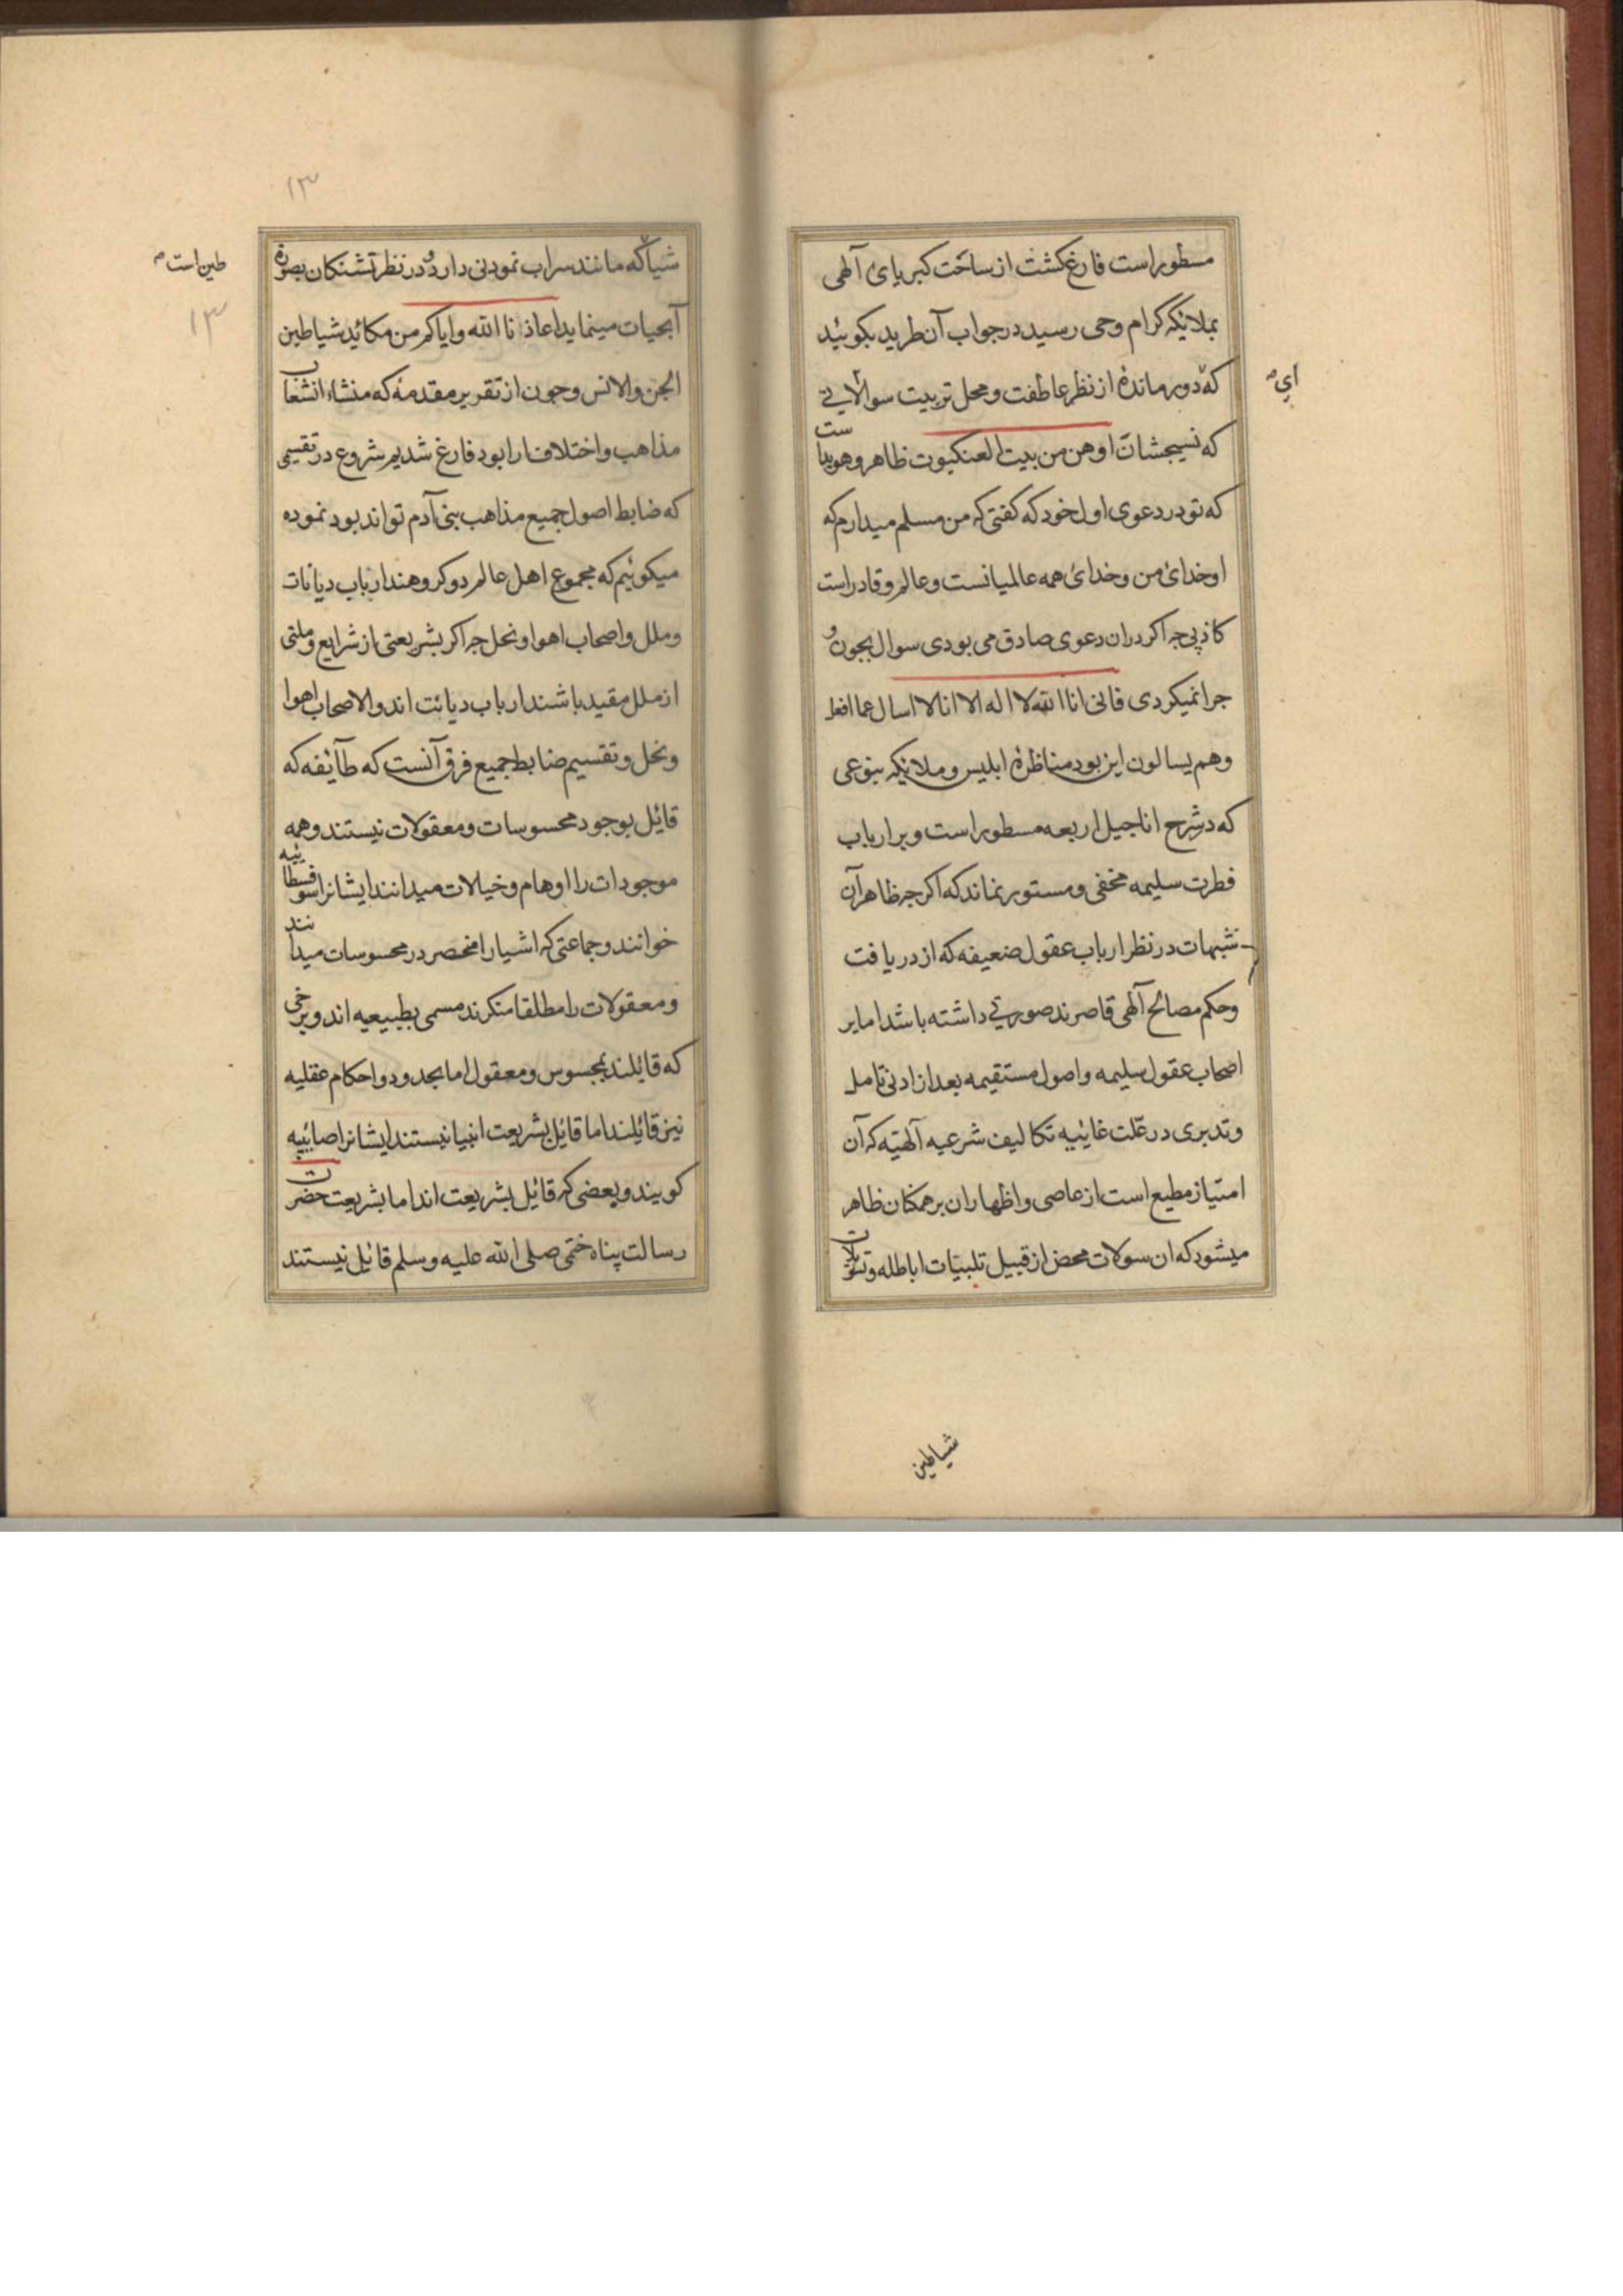 مسطور است فارغ کشت از ساحت کبریای آلهی
بملائیکه کرام وحی رسید در جواب آن طرید بکوئید
که دور مانده از نظر عاطفت و محل تربیت سوالاتی
ای
که نسیجشان اوهن من بیت العنکبوت ظاهر و هویداست
که تو در دعوی اول خود که کفتی که من مسلم میدارم که
او خدای من و خدای همه عالمیانست و عالم و قادر است
کاذبی چه اکر دران دعوی صادق می بودی سوال بچون و
چرا نمیکردی فانی انا الله لا اله الا انا لا اسال عما افعل
و هم یسالون این بود مناظره ابلیس و ملائیکه بنوعی
که در شرح اناجیل اربعه مسطور است و بر ارباب
فطرت سلیمه مخفی و مستور نماند که اکر چه ظاهر آن
شبهات در نظر ارباب عقول ضعیفه که از دریافت
و حکم مصالح آلهی قاصرند صورتی داشته باشد اما بر
اصحاب عقول سلیمه و اصول مستقیمه بعد از ادنی تامل
و تدبری در علت غائیه تکالیف شرعیه آلهیه که آن
امتیاز مطیع است از عاصی و اظهار ان بر همکنان ظاهر
میشود که ان سولات محض از قبیل تلبیات اباطله و
شیاطین
۱۳
شیا که مانند سراب نمودنی دارد و در نظر تشنکان بصورة
طین است
۱۳
آبحیات مینماید اعاذنا الله و ایاکم من مکائید شیاطین
الجن والانس و چون از تقریر مقدمه که منشاء انشعاب
مذاهب و اختلاف ارا بود فارغ شدیم شروع در تقسیمی
که ضابط اصول جمیع مذاهب بنی آدم تواند بود نموده
میکوئیم که مجموع اهل عالم دو کروهند ارباب دیانات
و ملل و اصحاب اهوا و نحل چه اکر بشریعتی از شرایع و ملتی
از ملل مقید باشند ارباب دیانت اند و الا صحاب اهوا
و نحل و تقسیم ضابط جمیع فرق آنست که طآئیفه که
قائیل بوجود محسوسات و معقولات نیستند و همه
موجودات را اوهام و خیالات میدانند ایشانرا سوفسطائیه
خوانند و جماعتی که اشیا را منحصر در محسوسات میدانند
و معقولات را مطلقا منکرند مسمی بطبیعیه اند و برخی
که قائیلند بمحسوس و معقول اما بحدود و احکام عقلیه
نیز قائیلند اما قائیل بشریعت انبیا نیستند ایشانرا صائبیه
کویند و بعضی که قائیل بشریعت اند اما بشریعت حضرت
رسالت پناه ختمی صلی الله علیه وسلم قائیل نیستند